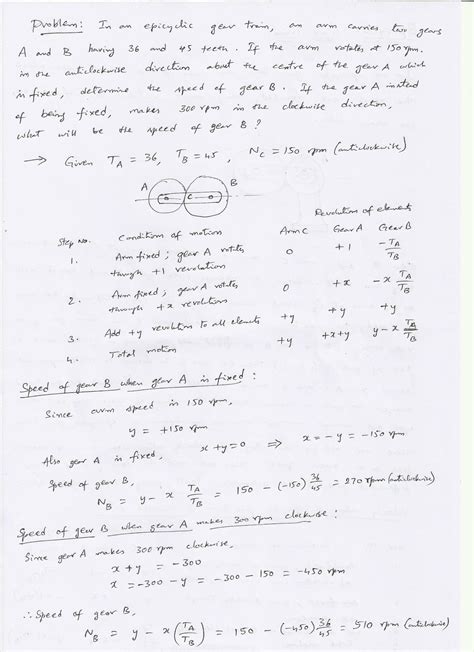 Problem: In an epicyclic gear train, an arm carries two gears
A and B having 36 and 45 teeth. If the arm rotates at 150 rpm.
in the anticlockwise direction about the centre of the gear A which
is fixed, determine the speed of gear B. If the gear A instead
of being fixed, makes 300 rpm in the clockwise direction,
what will be the speed of gear B?
→ Given T_A = 36, T_B = 45, N_C = 150 rpm (anticlockwise)
A C B
Revolution of elements
Step No. Conditions of motion Arm C Gear A Gear B
1. Arm fixed; gear A rotates through +1 revolution 0 +1 -T_A/T_B
2. Arm fixed; gear A rotates through +x revolutions 0 +x -x T_A/T_B
3. Add +y revolution to all elements +y +y +y
4. Total motion +y x+y y - x T_A/T_B
Speed of gear B when gear A is fixed:
Since arm speed is 150 rpm,
y = +150 rpm
Also gear A is fixed, x+y=0 ⇒ x = -y = -150 rpm
Speed of gear B,
N_B = y - x T_A/T_B = 150 - (-150) 36/45 = 270 rpm (anticlockwise)
Speed of gear B when gear A makes 300 rpm clockwise:
Since gear A makes 300 rpm clockwise,
x + y = -300
x = -300 - y = -300 - 150 = -450 rpm
∴ Speed of gear B,
N_B = y - x (T_A/T_B) = 150 - (-450) 36/45 = 510 rpm (anticlockwise)